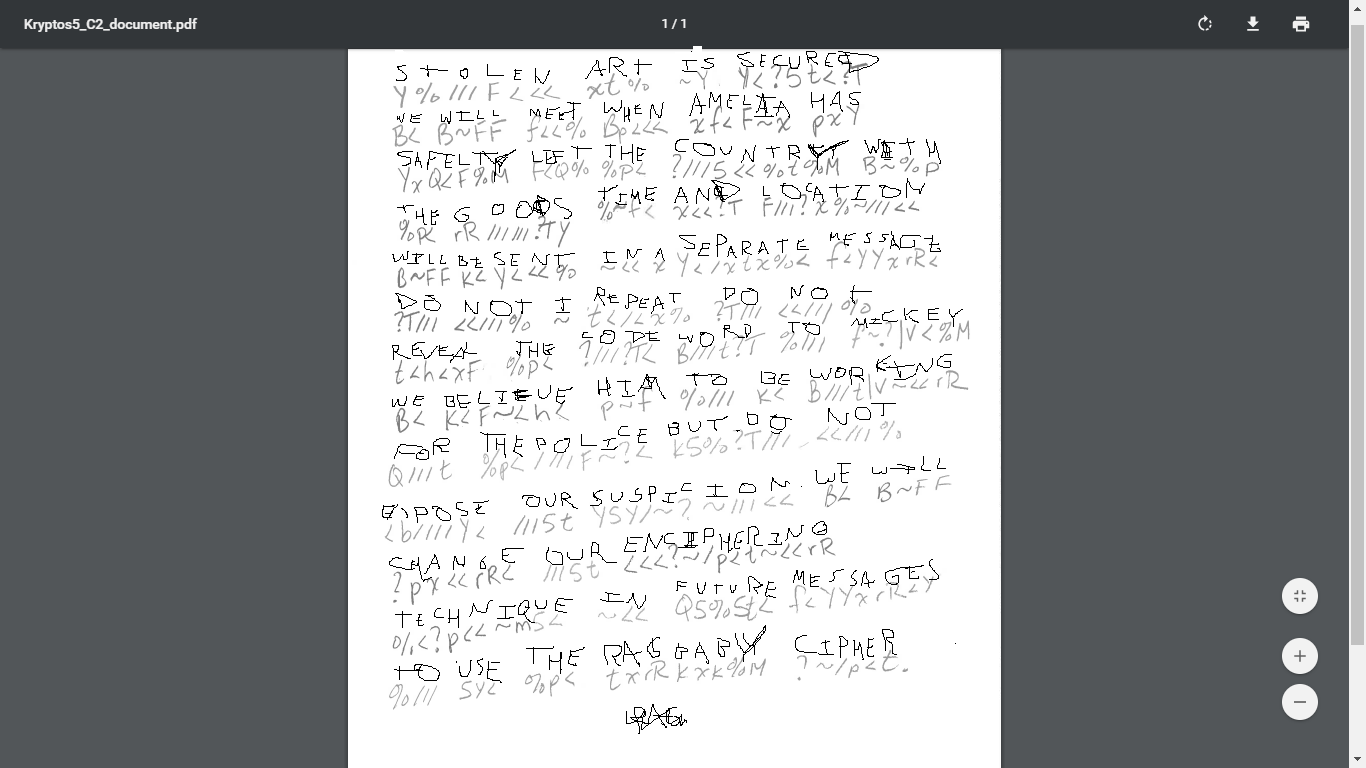 Kryptos5_C2_document.pdf 1 / 1
STOLEN ART IS SECURED
Y%///F<<< xt% ~Y Y<?5t<?T
WE WILL MEET WHEN AMELIA HAS
B< B~FF f<<% Bp<<< xf<F~x pxY
SAFELTY LEFT THE COUNTRY WITH
YxQ<F%M F<Q% %p< ?///5<<%t%M B~%p
THE GOODS TIME AND LOCATION
%p< rR//////?TY %~f< x<<?T F///?x%~///<<
WILL BE SENT IN A SEPARATE MESSAGE
B~FF k< Y<<<% ~<< x Y</xtx%< f<YYxrR<
DO NOT I REPEAT DO NOT
?T/// <<///% ~ t</<x% ?T/// <<///%
REVEAL THE CODE WORD TO MICKEY
t<h<xF %p< ?///?T< B///t?T %/// f~?|V<%M
WE BELIEVE HIM TO BE WORKING
B< k<F~<h< p~f %/// k< B///t|V~<<rR
FOR THE POLICE BUT DO NOT
Q///t %p< ////F~?< k5% ?T/// <<///%
EXPOSE OUR SUSPICION. WE WILL
<b////Y< ///5t Y5Y/~?~///<< B< B~FF
CHANGE OUR ENCIPHERING
?px<<rR< ///5t <<<?~/p<t~<<rR
TECHNIQUE IN FUTURE MESSAGES
%<?p<<~m5< ~<< Q5%5t< f<YYxrR<Y
TO USE THE RAGBABY CIPHER
%/// 5Y< %p< txrRkxk%M ?~/p<t.